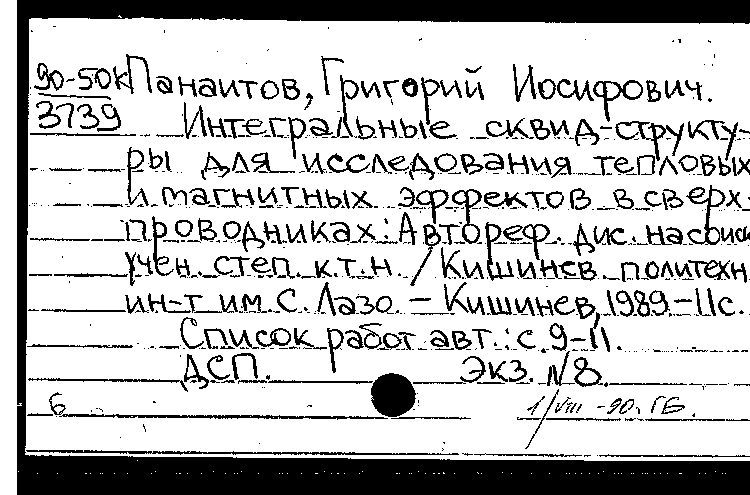 90-50К Панаитов, Григорий Иосифович.
3739 Интегральные сквид-структу-
ры для исследования тепловых
и магнитных эффектов в сверх-
проводниках: Автореф. дис. на соиск.
учен. степ. к.т.н. / Кишинев. политехн.
ин-т им С. Лазо. – Кишинев, 1989 – 11с.
Список работ авт.: с. 9-11.
ДСП. Экз. №8.
6 1/VIII -90. ГБ.